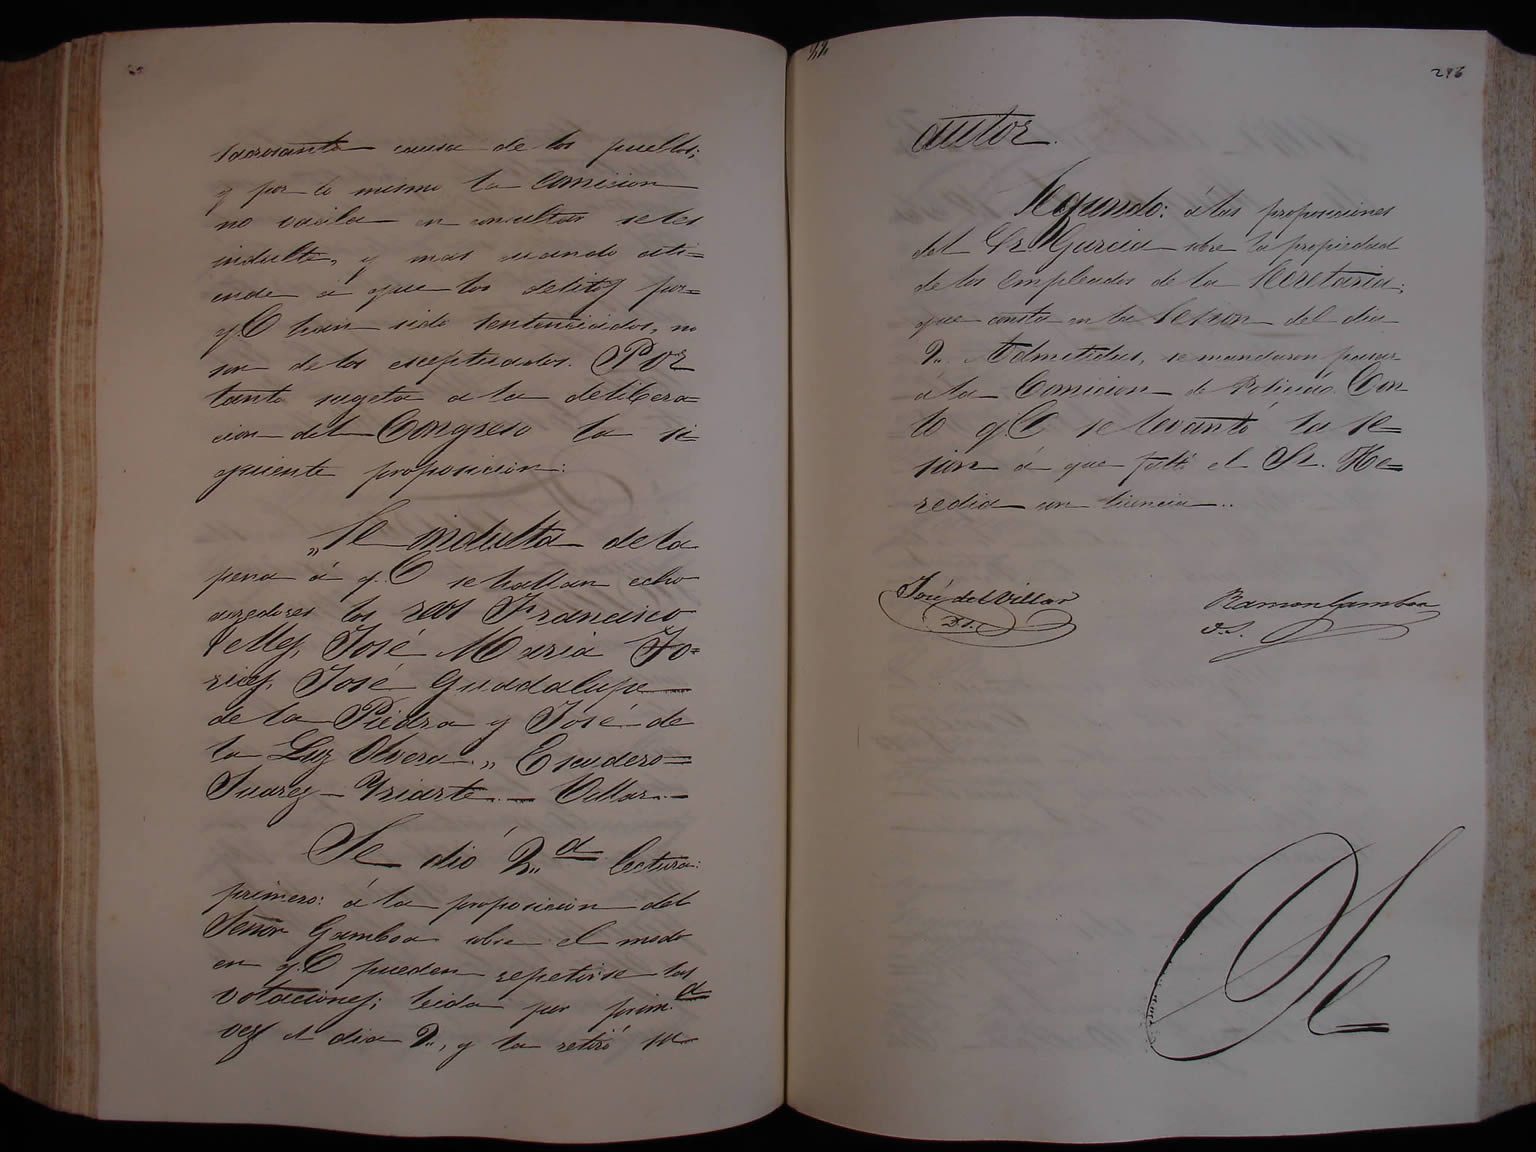 sacrosanta causa de los pueblos;
y por lo mismo la Comicion
no vacila en consultar se les
indulte, y mas cuando ati=
ende á que los delitos por=
q.e han sido sentenciados, no
son de los esceptuados. Por
tanto sugeta á la delibera=
cion del Congreso la si=
guiente proposicion:
„Se indulta de la
pena á q.e se hallan echo
acreedores los reos Francisco
Velles, José Maria To=
rices, José Guadalupe
de la Piedra y José de
la Luz Olvera.„ Escudero=
Suarez – Yriarte.– Villar.–
Se dió 2.ª lectura:
primero: á la proposicion del
Señor Gamboa sobre el modo
en q.e pueden repetirse las
votaciones; leida por prim.ª
vez el dia 2., y la retiró su
286
autor.
Segundo: á las proposiciones
del Sr. Garcia sobre la propiedad
de los Empleados de la Secretaria;
que consta en la Sesion del dia
2. Admitidas, se mandaron pasar
á la Comicion de Policia. Con
lo q.e se levantó la se=
sion á que faltó el Sr. He=
redia con licencia..
José del Villar Ramon Gamboa
D.S. D.S.
Se